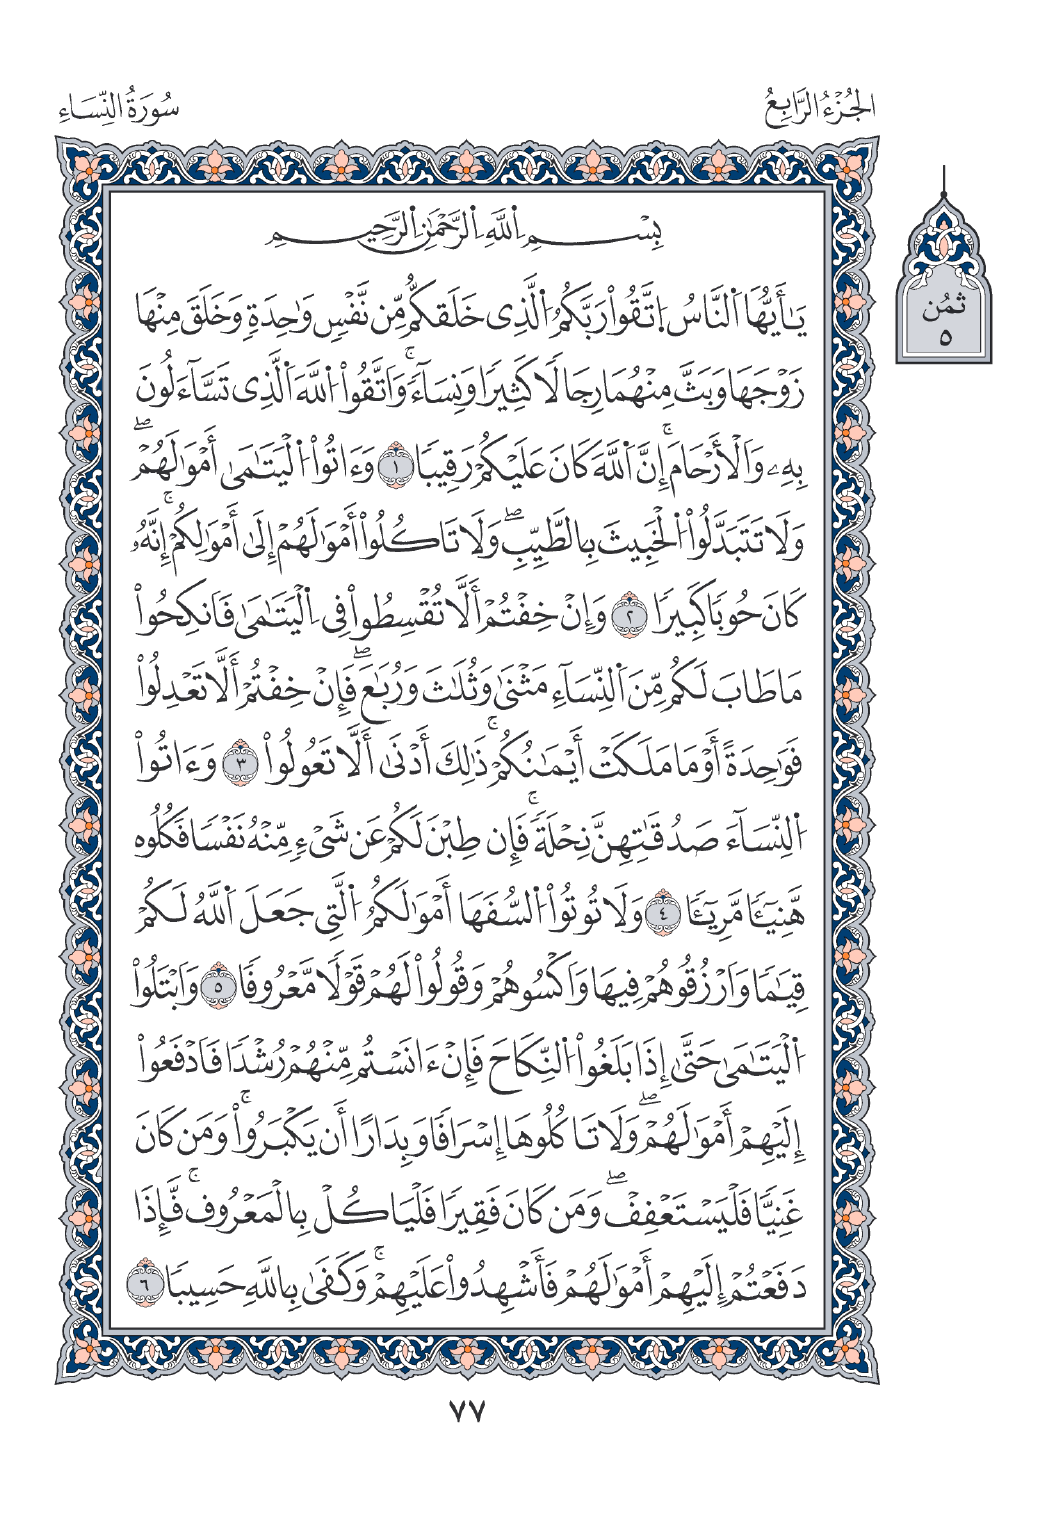 الجُزْءُ الرَّابِعُ
سُورَةُ النِّسَاءِ
ثمُن
٥
بِسْمِ اِ۬للَّهِ اِ۬لرَّحْمَٰنِ اِ۬لرَّحِيمِ
يَٰأَيُّهَا اَ۬لنَّاسُ اُ۪تَّقُواْ رَبَّكُمُ اُ۬لَّذِى خَلَقَكُمْ مِّن نَّفْسٍ وَٰحِدَةٍ وَخَلَقَ مِنْهَا
زَوْجَهَا وَبَثَّ مِنْهُمَا رِجَالًا كَثِيرًا وَنِسَآءًۚ وَاتَّقُواْ اُ۬للَّهَ اَ۬لَّذِى تَسَّآءَلُونَ
بِهِۦ وَالْأَرْحَامَۚ إِنَّ اَ۬للَّهَ كَانَ عَلَيْكُمْ رَقِيبًا ١ وَءَاتُواْ اُ۬لْيَتَٰمَىٰ أَمْوَٰلَهُمْۖ
وَلَا تَتَبَدَّلُواْ اُ۬لْخَبِيثَ بِالطَّيِّبِۖ وَلَا تَاكُلُواْ أَمْوَٰلَهُمْ إِلَىٰ أَمْوَٰلِكُمْۚ إِنَّهُۥ
كَانَ حُوبًا كَبِيرًا ٢ وَإِنْ خِفْتُمْ أَلَّا تُقْسِطُواْ فِى اِ۬لْيَتَٰمَىٰ فَانكِحُواْ
مَا طَابَ لَكُم مِّنَ اَ۬لنِّسَآءِ مَثْنَىٰ وَثُلَٰثَ وَرُبَٰعَۖ فَإِنْ خِفْتُمْ أَلَّا تَعْدِلُواْ
فَوَٰحِدَةً أَوْ مَا مَلَكَتْ أَيْمَٰنُكُمْۚ ذَٰلِكَ أَدْنَىٰ أَلَّا تَعُولُواْ ٣ وَءَاتُواْ
اُ۬لنِّسَآءَ صَدُقَٰتِهِنَّ نِحْلَةًۚ فَإِن طِبْنَ لَكُمْ عَن شَىْءٍ مِّنْهُ نَفْسًا فَكُلُوهُ
هَنِيٓـًٔا مَّرِيٓـًٔا ٤ وَلَا تُوتُواْ اُ۬لسُّفَهَا أَمْوَٰلَكُمُ اُ۬لَّتِى جَعَلَ اَ۬للَّهُ لَكُمْ
قِيَٰمًا وَارْزُقُوهُمْ فِيهَا وَاكْسُوهُمْ وَقُولُواْ لَهُمْ قَوْلًا مَّعْرُوفًا ٥ وَابْتَلُواْ
اُ۬لْيَتَٰمَىٰ حَتَّىٰ إِذَا بَلَغُواْ اُ۬لنِّكَاحَ فَإِنْ ءَانَسْتُم مِّنْهُمْ رُشْدًا فَادْفَعُواْ
إِلَيْهِمْ أَمْوَٰلَهُمْۖ وَلَا تَاكُلُوهَا إِسْرَافًا وَبِدَارًا أَن يَكْبَرُواْۚ وَمَن كَانَ
غَنِيًّا فَلْيَسْتَعْفِفْۖ وَمَن كَانَ فَقِيرًا فَلْيَاكُلْ بِالْمَعْرُوفۚ فَّإِذَا
دَفَعْتُمْ إِلَيْهِمْ أَمْوَٰلَهُمْ فَأَشْهِدُواْ عَلَيْهِمْۚ وَكَفَىٰ بِاللَّهِ حَسِيبًا ٦
٧٧